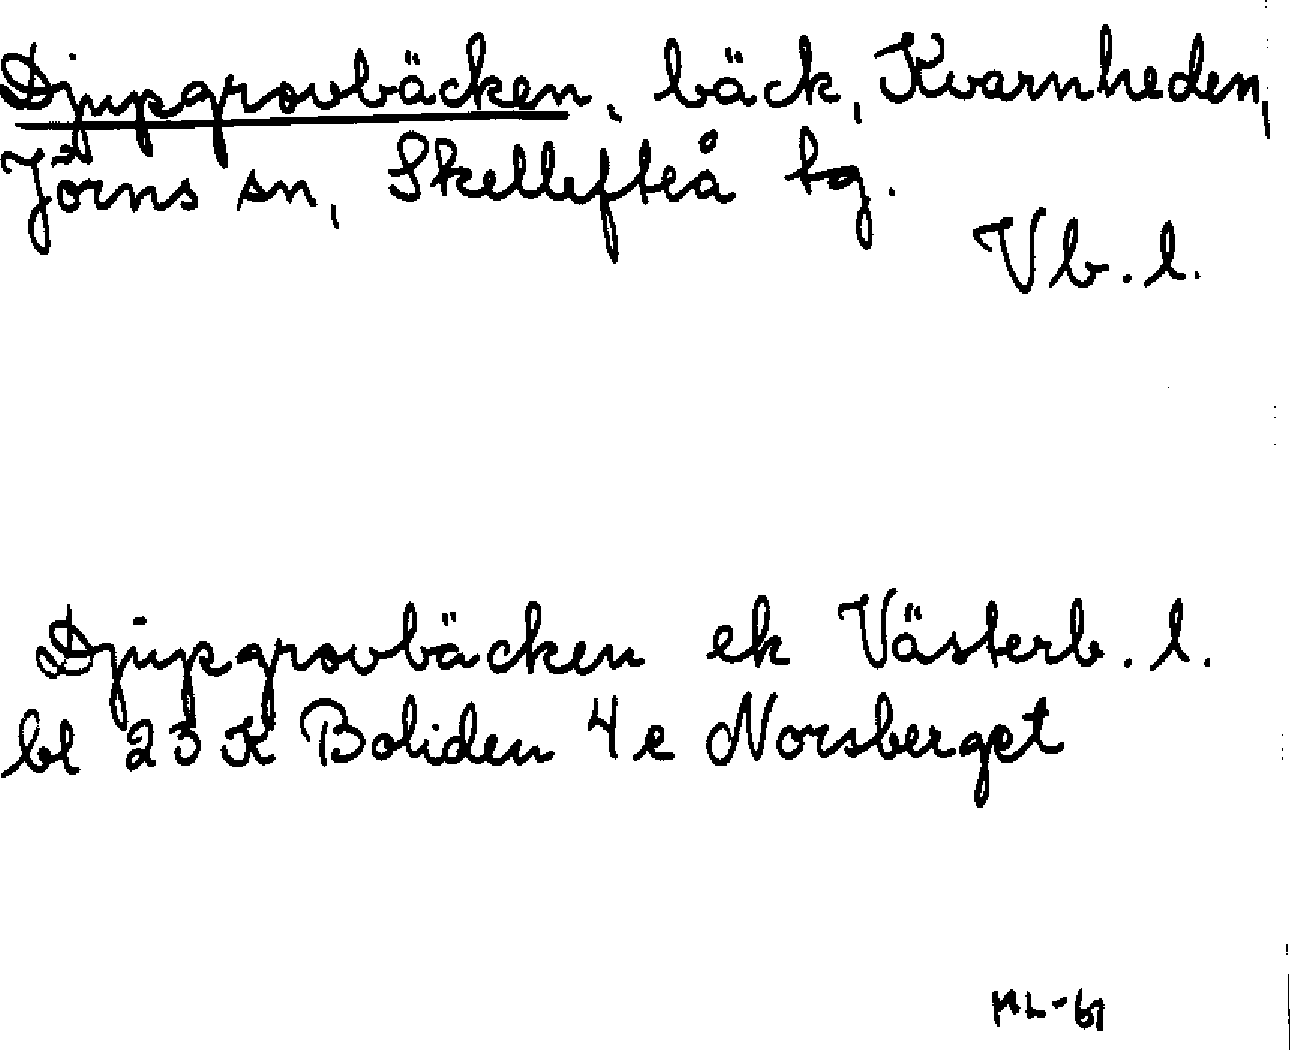 Djupgrovbäcken, bäck, Kvarnheden,
Jörns sn, Skellefteå tg.
Vb. l.
Djupgrovbäcken ek Västerb. l.
bl 23 K Boliden 4 e Norsberget